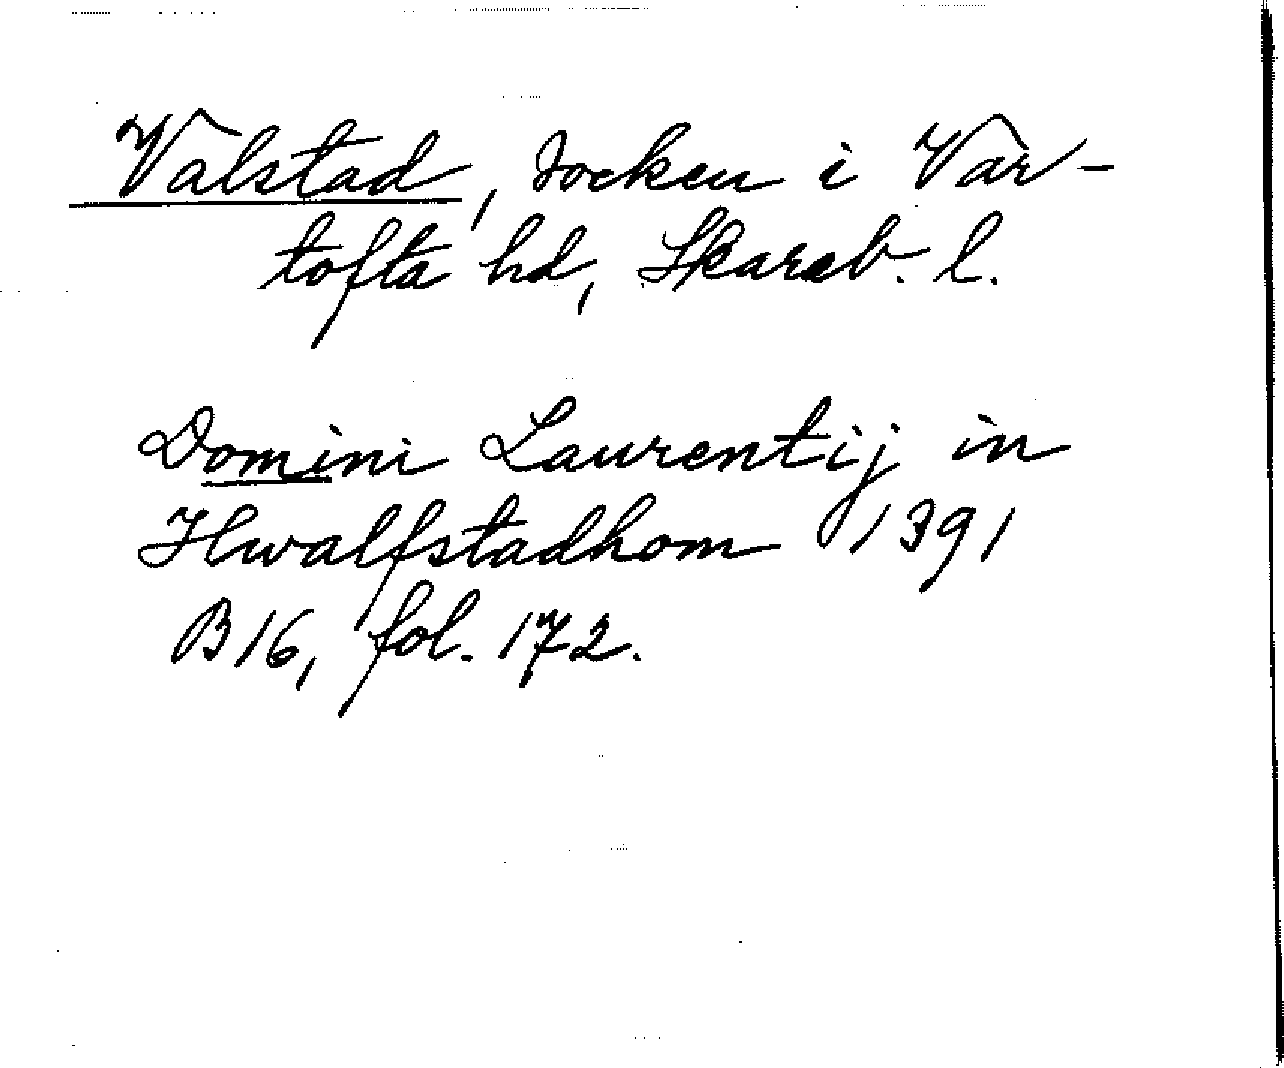 Valstad, socken i Var-
tofta hd, Skarab. l.
Domini Laurentij in
Hwalfstadhom 1391
B16, fol. 172.